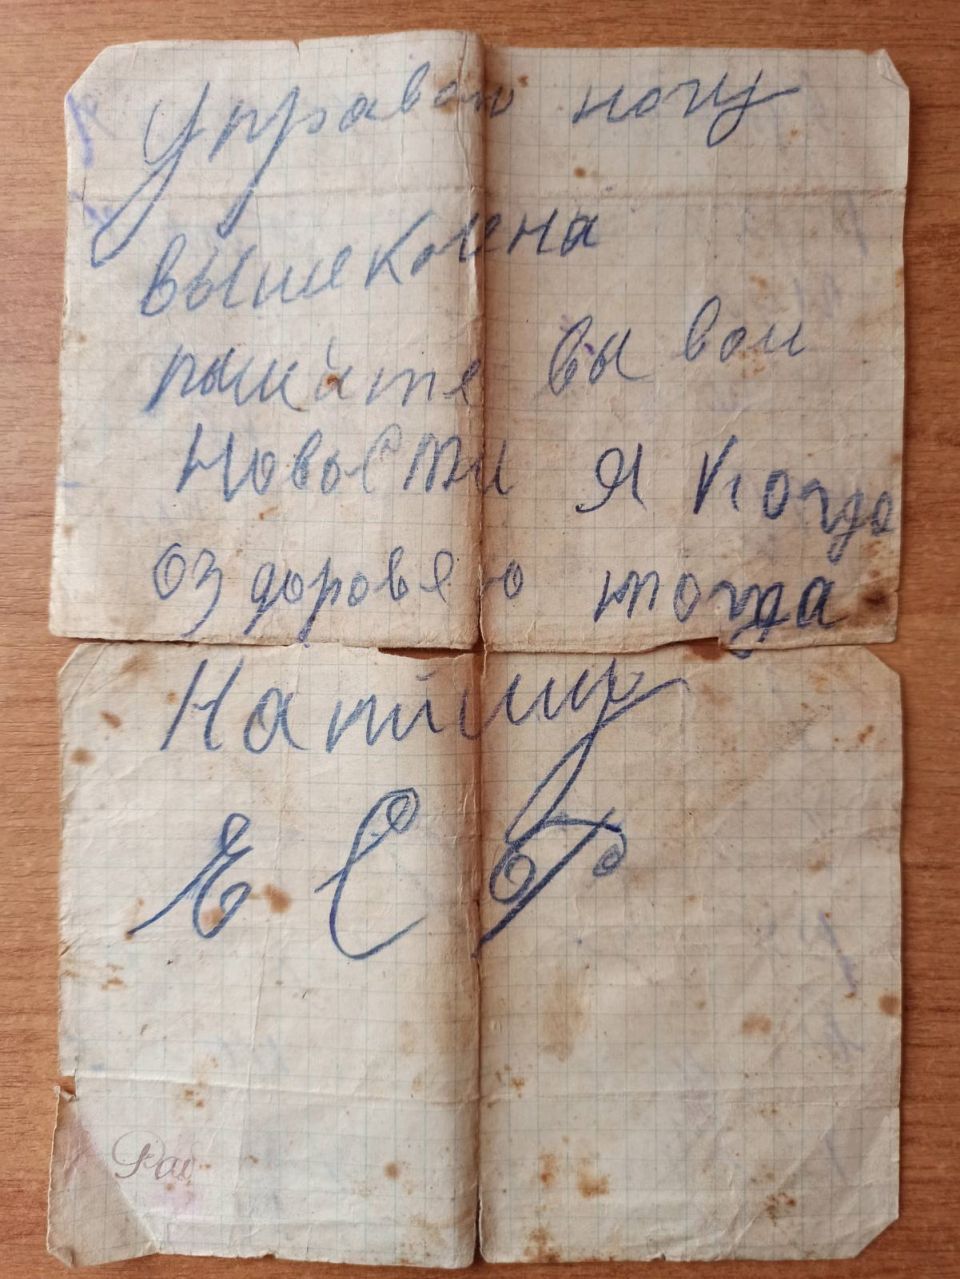 управою ногу
выше колена
пышите вы вои
Новости я когда
оздоровею тогда
Напишу
Е С